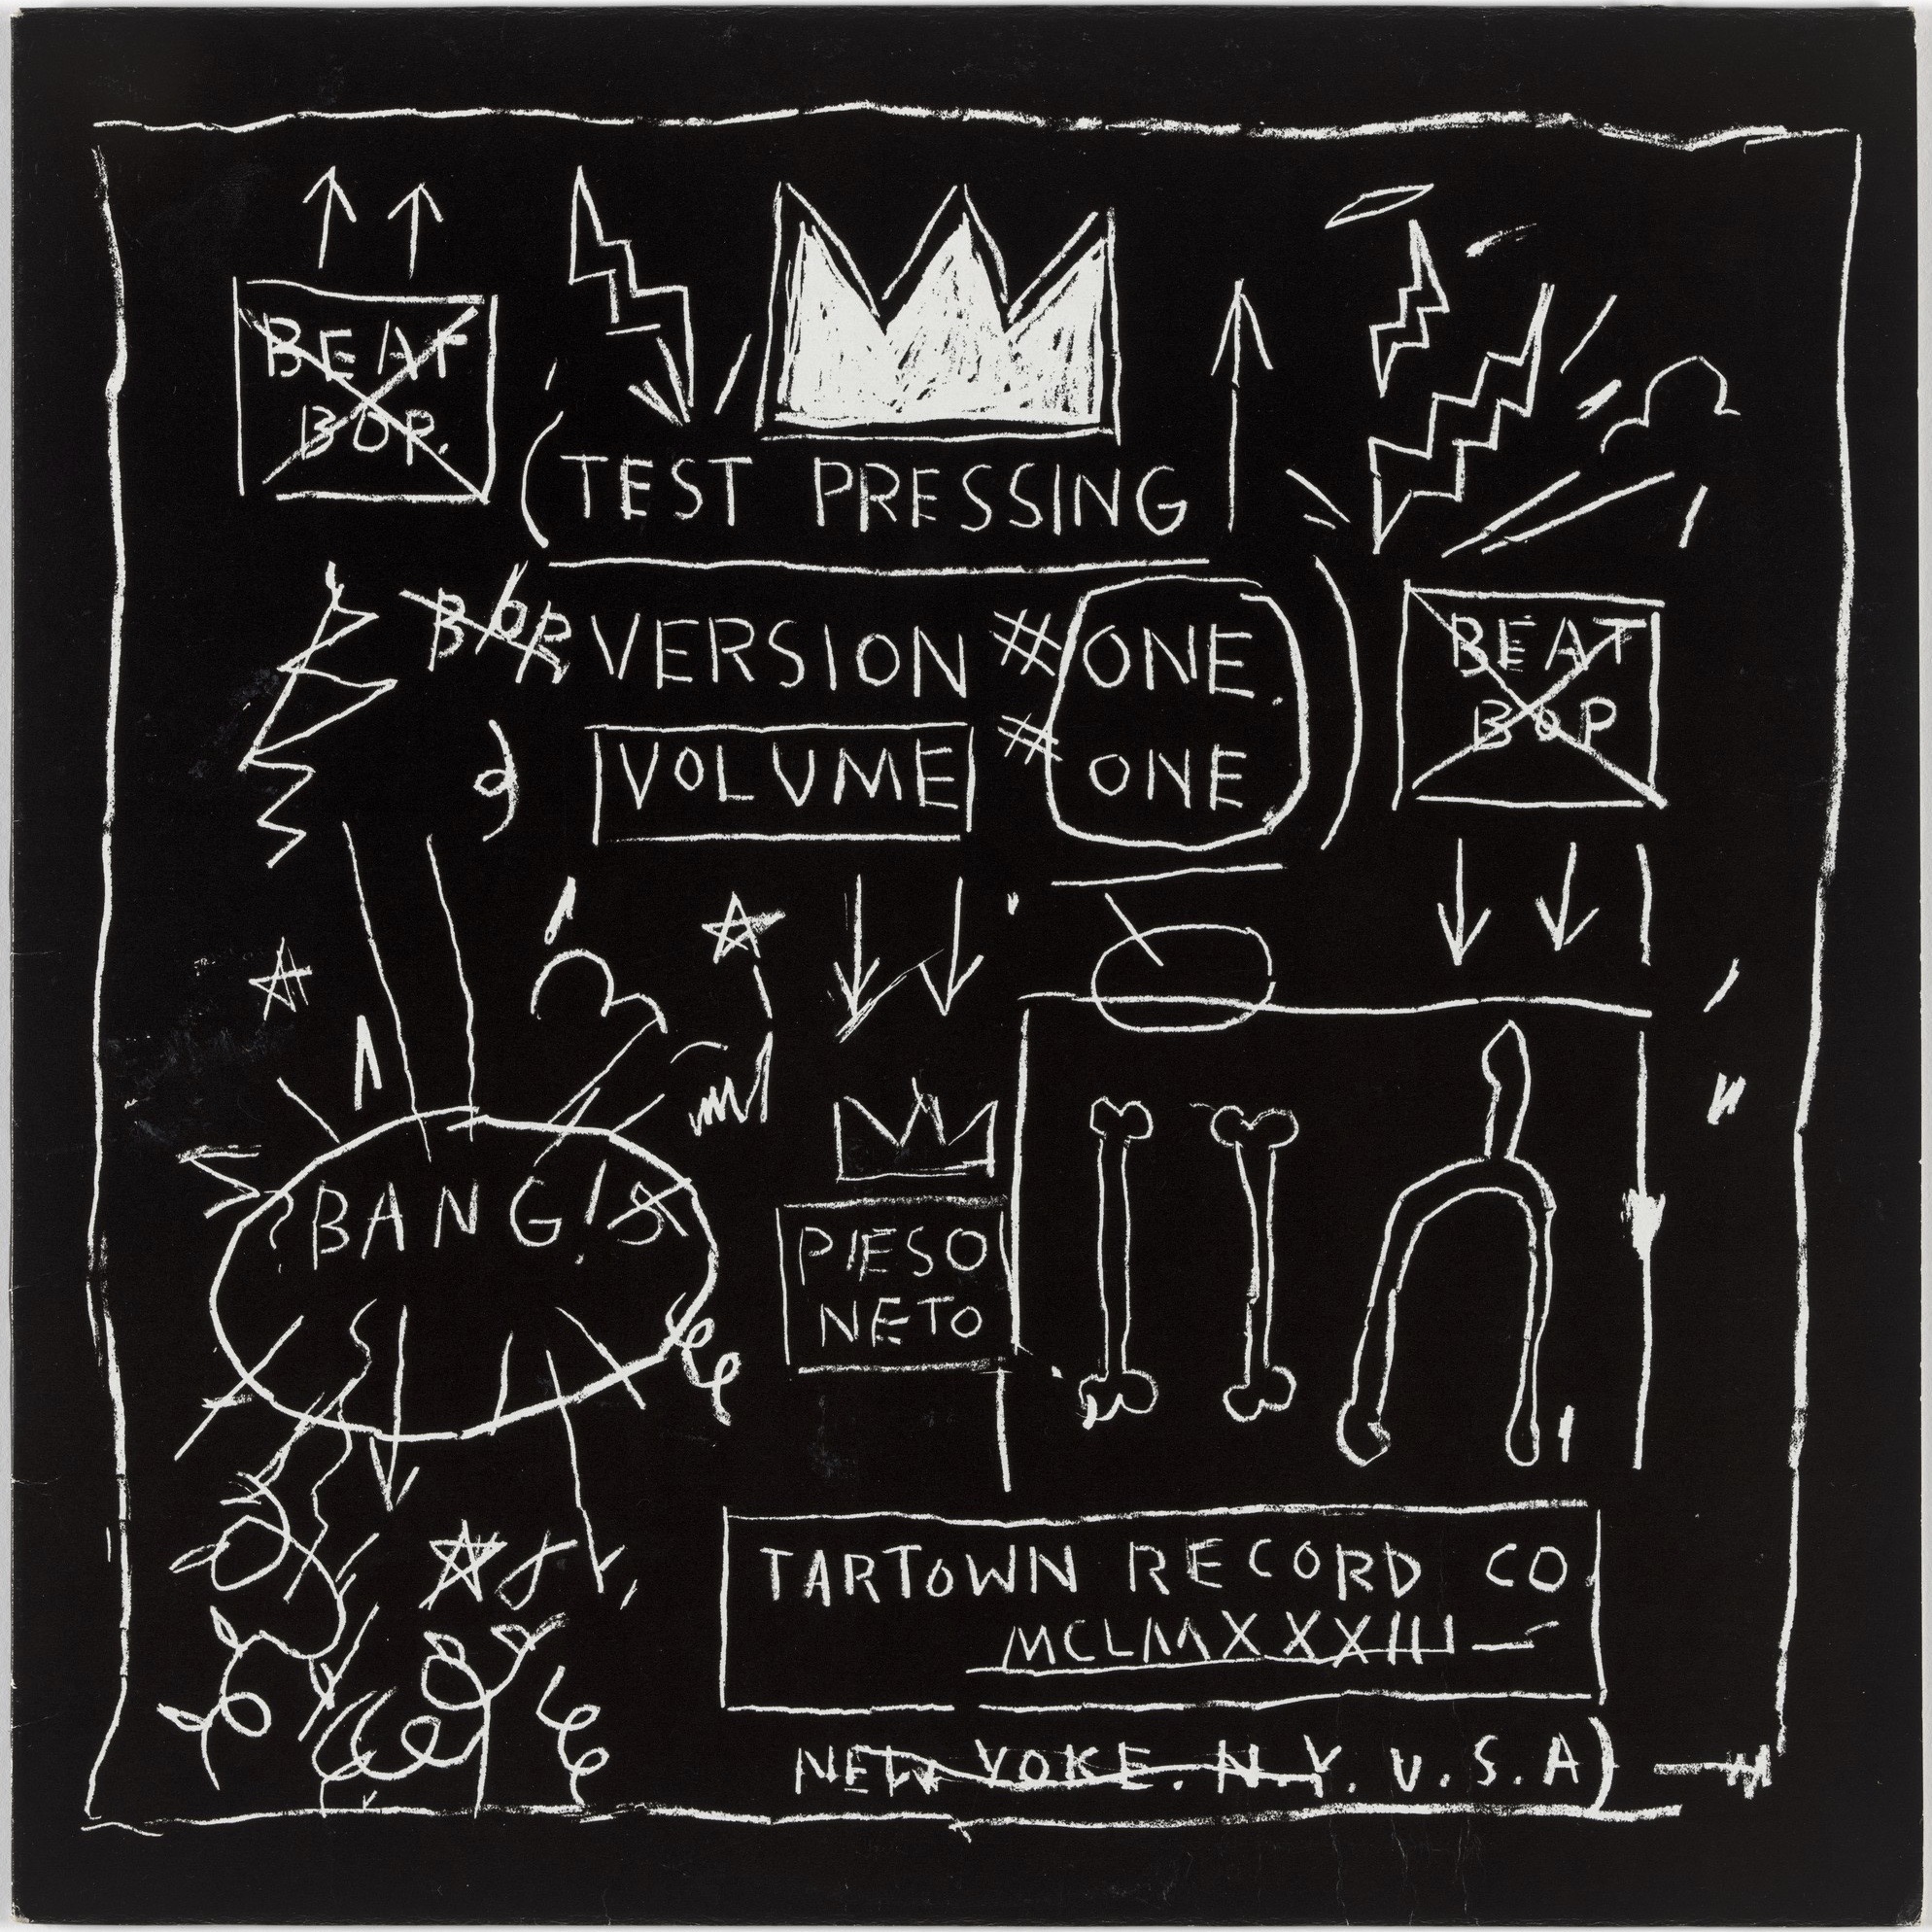 BEAT
BOP.
(TEST PRESSING
BOP VERSION # ONE.
VOLUME # ONE)
BEAT
BOP
?BANG!
PIESO
NETO
TARTOWN RECORD CO
MCLMXXXIII
NEW YOKE. N.Y. U.S.A)